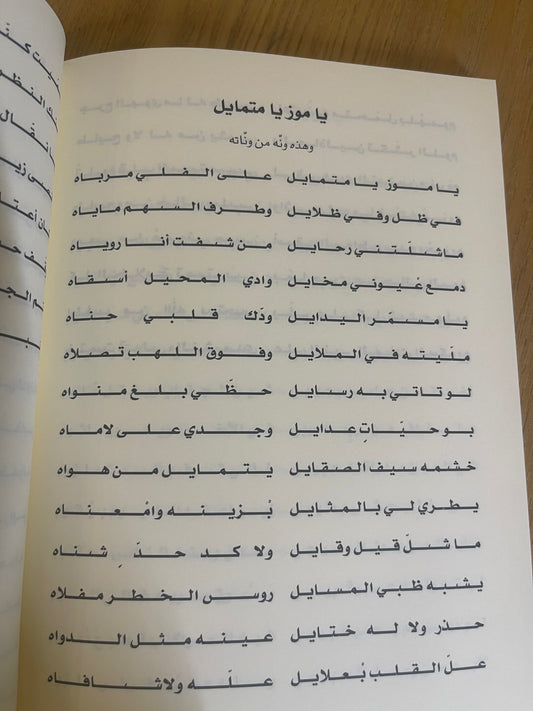 يا موز يا متمايل
وهذه ونّه من ونّاته
يا موز يا متمايل على الفلي مرباه
في ظل وفي ظلايل وطرف السهم ماياه
ماشلّتني رحايل من شفت أنا روياه
دمع عيوني مخايل وادي المحيل أسقاه
يا مسمّر اليدايل ودّك قلبي حناه
ملّيته في الملايل وفوق اللهب تصلاه
لو تاتي به رسايل حظّي بلغ منواه
بو حيّاتٍ عدايل وجدي على لاماه
خشمه سيف الصقايل يتمايل من هواه
يطري لي بالمثايل بُزينه وامْعناه
ما شلّ قيل وقايل ولا كد حدَ شناه
يشبه ظبي المسايل روس الخطر مفلاه
حذر ولا له ختايل عينه مثل الدواه
علّ القلب بُعلايل علّه ولاشافاه